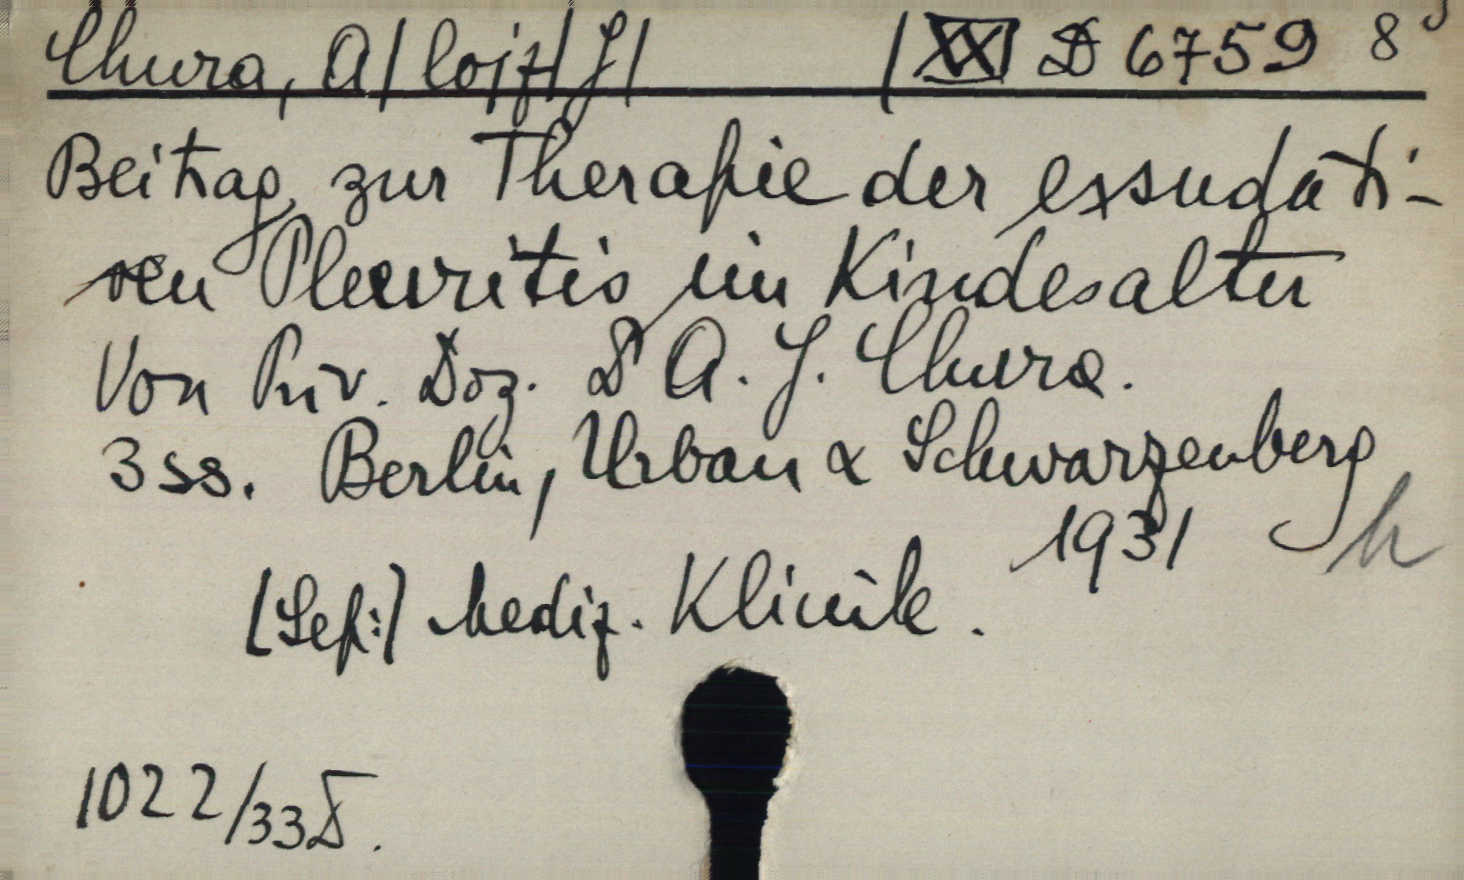 Chura, A|lojz| J| | XX D 6759 8°
Beitrag zur Therapie der exsudati-
ven Pleuritis im Kindesalter
Von Priv. Doz. Dr A. J. Chura.
3 ss. Berlin, Urban & Schwarzenberg
1931 h
[Sep:] Mediz. Klinik.
1022/33 D.